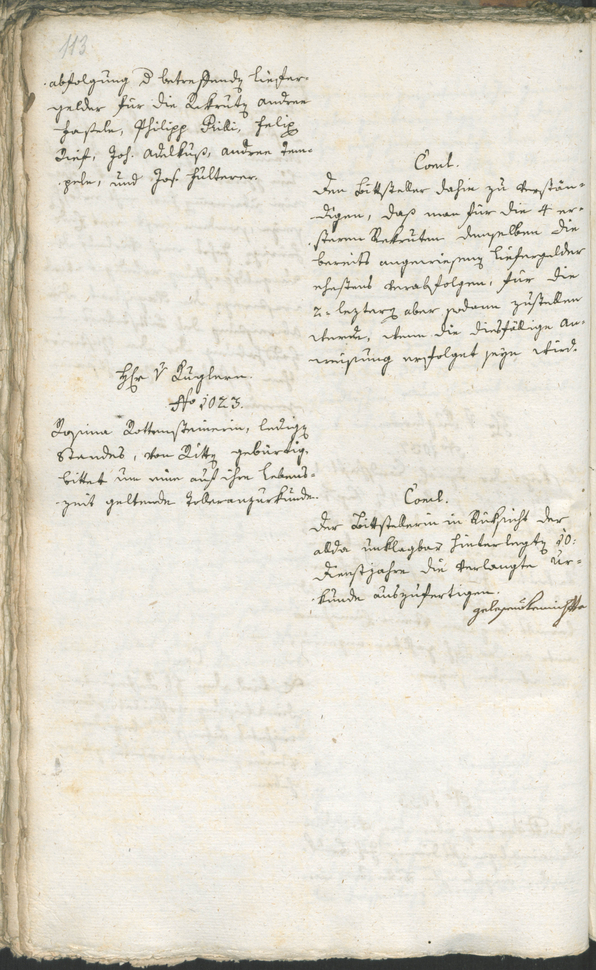 113
abfolgung d betreffenden liefer-
gelder für die Rekruten Andree
Hasele, Philipp Bibi, Felix
Rief, Joh. Adelkuß, Andree Tem-
pele, und Jos. Hülterer.
Concl.
Den Bittsteller dahin zu verstän-
digen, daß man für die 4 er-
stern Rekruten demselben die
bereits angewiesenen liefergelder
ehestens verabfolgen, für die
2. leztern aber sodann zustellen
werde, wenn die diesfällige An-
weisung erfolget seyn wird.
Hr. v Kuglern.
No. 1023.
Rosina Rottensteinerin, ledigen
Standes, von Ritten gebürtig,
bittet um eine auf ihre lebens-
zeit geltende Toleranzurkunde.
Concl.
Der Bittstellerin in Rücksicht der
alda unklagbar hinterlegten 10.
Dienstjahre die verlangte Ur-
kunde auszufertigen.